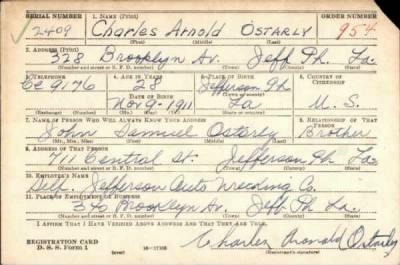 SERIAL NUMBER 1. NAME (Print) ORDER NUMBER
2409 Charles Arnold OSTARLY 954
(First) (Middle) (Last)
2. ADDRESS (Print)
328 Brooklyn Av. Jeff Ph. La.
(Number and street or R. F. D. number) (Town) (County) (State)
3. TELEPHONE 4. AGE IN YEARS 5. PLACE OF BIRTH 6. COUNTRY OF CITIZENSHIP
Ce 9176 28 Jefferson Ph
DATE OF BIRTH
Nov 9-1911 La U. S.
(Exchange) (Number) (Mo.) (Day) (Yr.) (State or country)
7. NAME OF PERSON WHO WILL ALWAYS KNOW YOUR ADDRESS 8. RELATIONSHIP OF THAT PERSON
John Samuel Ostarly Brother
(Mr., Mrs., Miss) (First) (Middle) (Last)
9. ADDRESS OF THAT PERSON
711 Central St. Jefferson Ph La.
(Number and street or R. F. D. number) (Town) (County) (State)
10. EMPLOYER'S NAME
Self. Jefferson Auto Wrecking Co.
11. PLACE OF EMPLOYMENT OR BUSINESS
340 Brooklyn Av. Jeff Ph La.
(Number and street or R. F. D. number) (Town) (County) (State)
I AFFIRM THAT I HAVE VERIFIED ABOVE ANSWERS AND THAT THEY ARE TRUE.
REGISTRATION CARD
D. S. S. Form 1 (over) Charles Arnold Ostarly
(Registrant's signature)